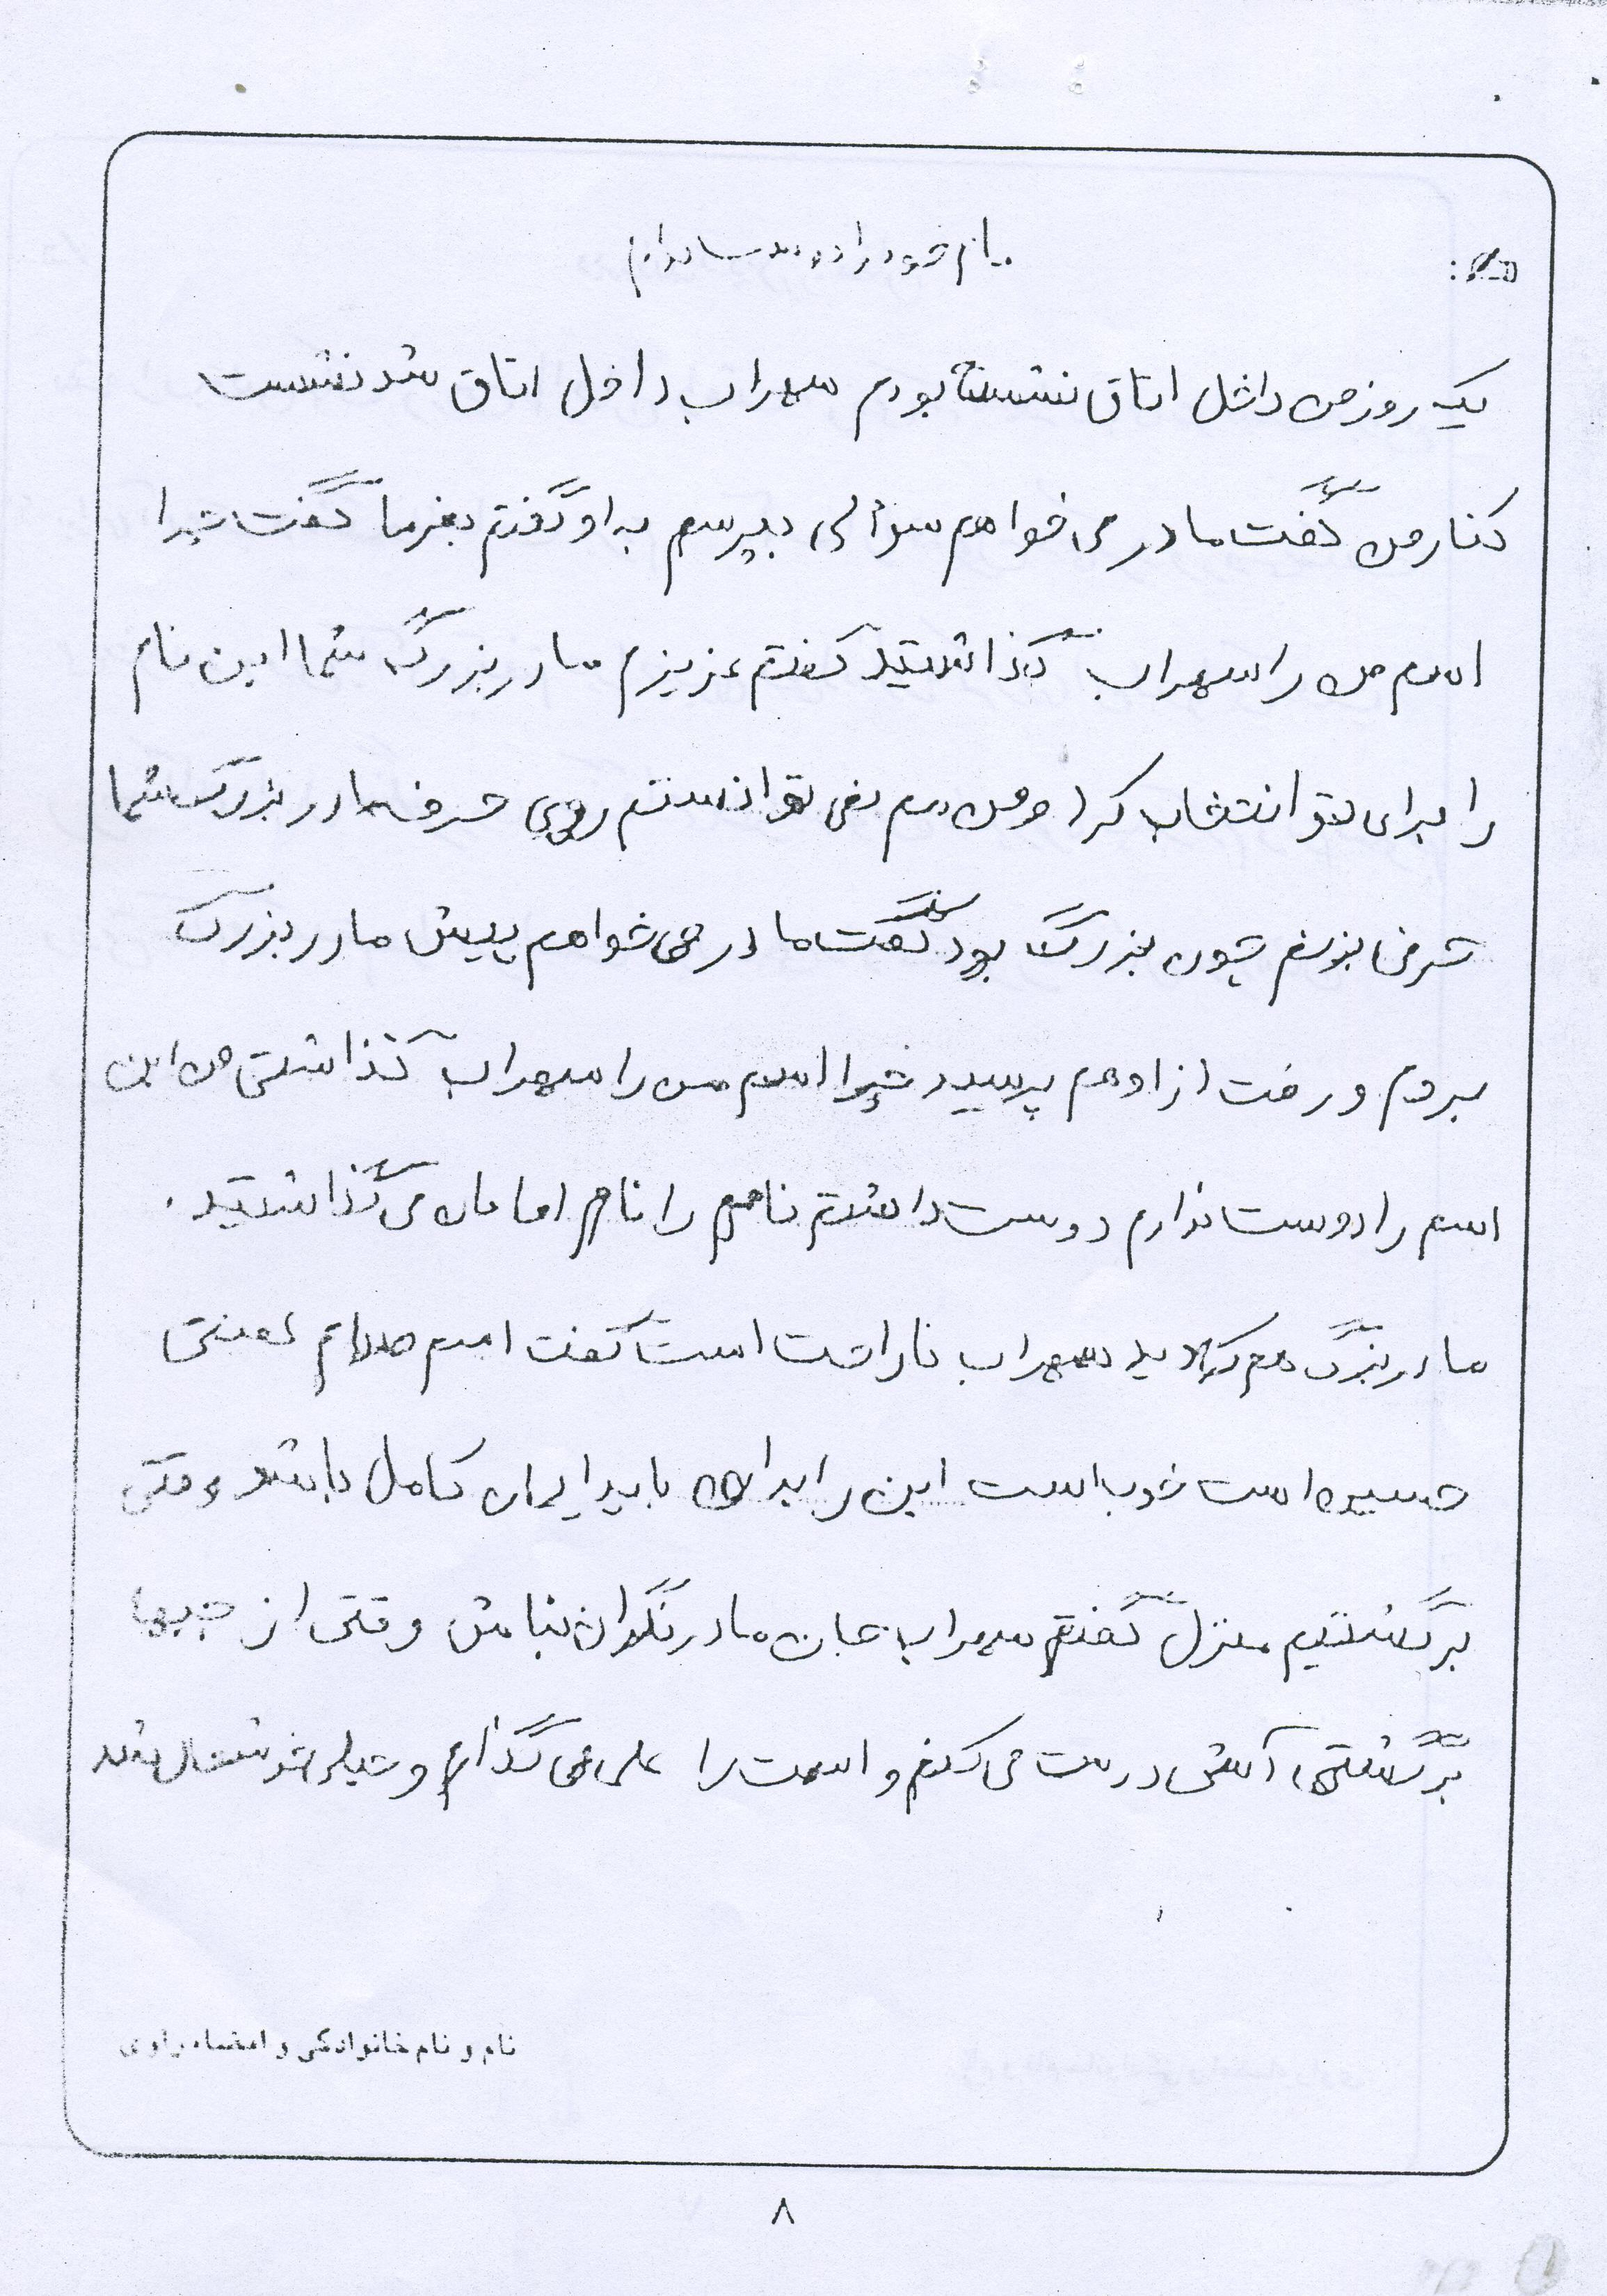 نام خود را دوست ندارم
یک روز من داخل اتاق نشسته بودم سهراب داخل اتاق شد نشست
کنار من گفت مادر می خواهم سؤالی بپرسم به او گفتم بفرما گفت چرا
اسم من را سهراب گذاشتید گفتم عزیزم مادر بزرگ شما این نام
را برای تو انتخاب کرد و من هم نمی توانستم روی حرف مادر بزرگ شما
حرفی بزنم چون بزرگ بود گفت مادر می خواهم پیش مادر بزرگ
بروم و رفت از او هم پرسید چرا اسم من را سهراب گذاشتی من این
اسم را دوست ندارم دوست داشتم نامم را نام امامان می گذاشتید.
مادر بزرگ هم که دید سهراب ناراحت است گفت اسم
است خوب است این را بدان باید ایمان کامل باشد وقتی
برگشتیم منزل گفتم سهراب جان مادر نگران نباش وقتی از جبهه
برگشتی آش درست می کنم و اسمت را علی می گذارم و خیلی خوشحال شد
نام و نام خانوادگی و امضاء راوی
۸